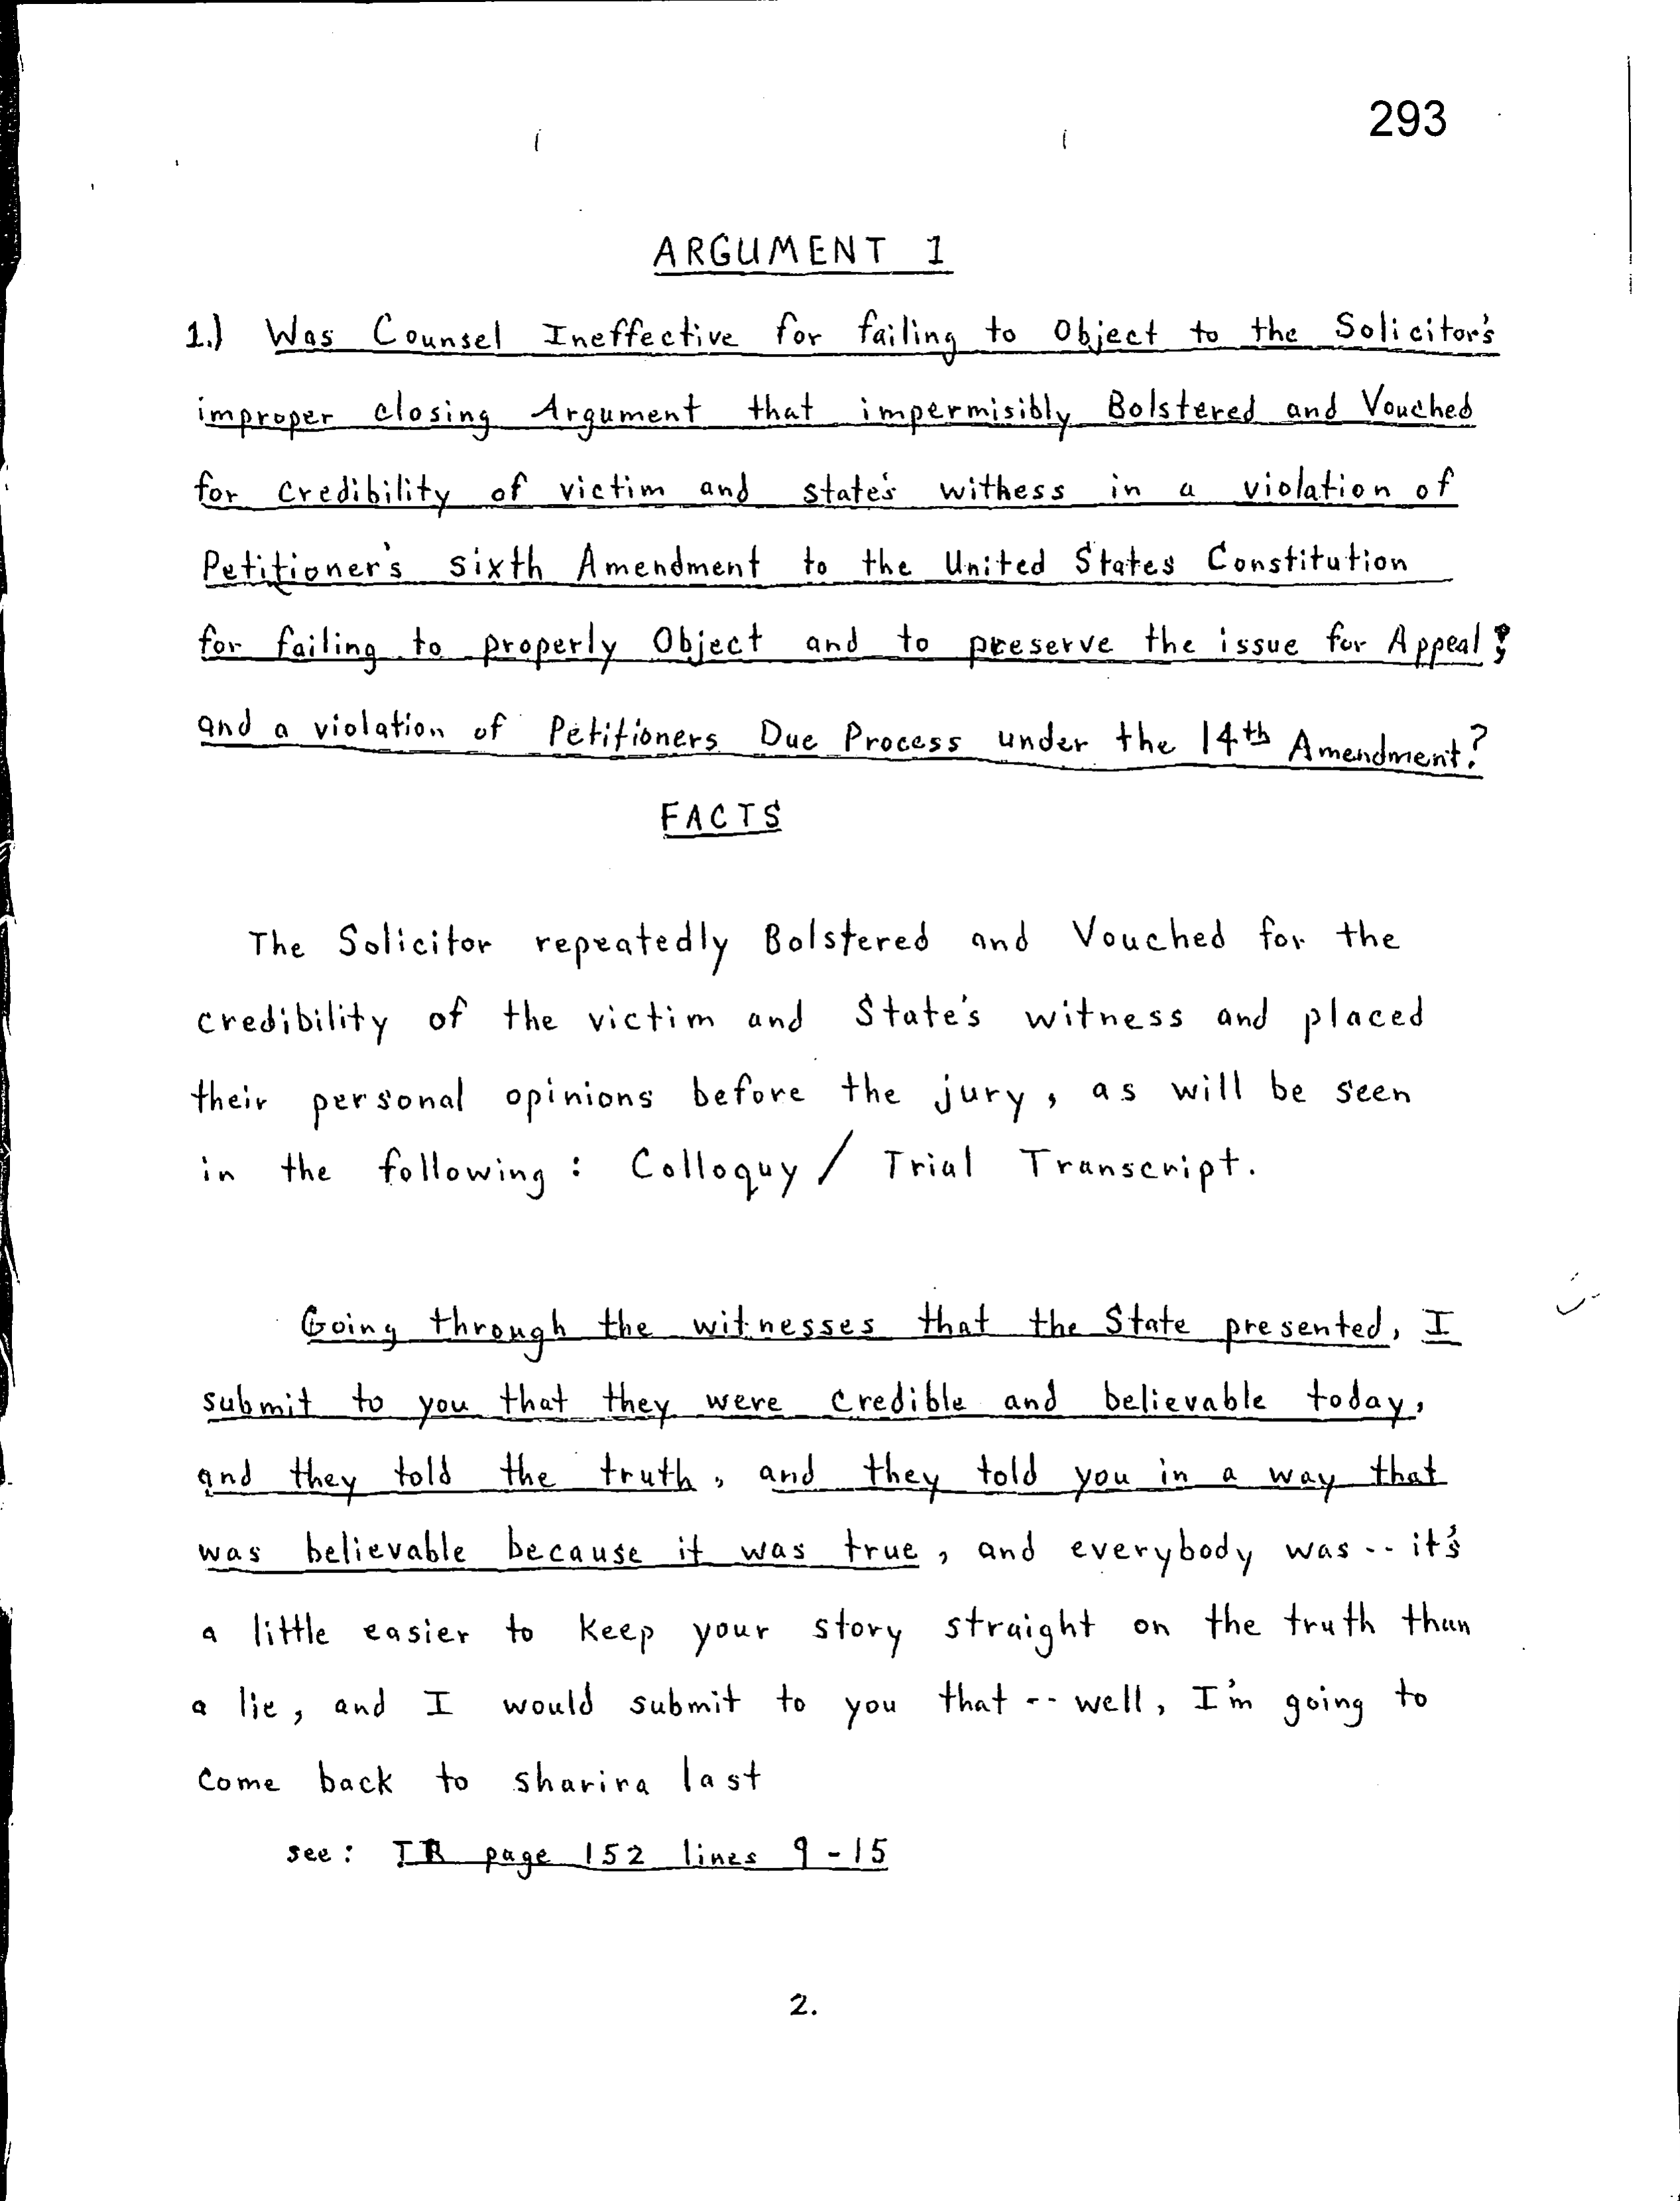 293
ARGUMENT 1
1.) Was Counsel Ineffective for failing to Object to the Solicitor's
improper closing Argument that impermisibly Bolstered and Vouched
for credibility of victim and state's withess in a violation of
Petitioner's sixth Amendment to the United States Constitution
for failing to properly Object and to preserve the issue for Appeal;
and a violation of Petitioners Due Process under the 14th Amendment?
FACTS
The Solicitor repeatedly Bolstered and Vouched for the
credibility of the victim and State's witness and placed
their personal opinions before the jury, as will be seen
in the following: Colloquy / Trial Transcript.
Going through the witnesses that the State presented, I
submit to you that they were credible and believable today,
and they told the truth, and they told you in a way that
was believable because it was true, and everybody was -- it's
a little easier to keep your story straight on the truth than
a lie, and I would submit to you that -- well, I'm going to
come back to sharira last
see: TR page 152 lines 9-15
2.